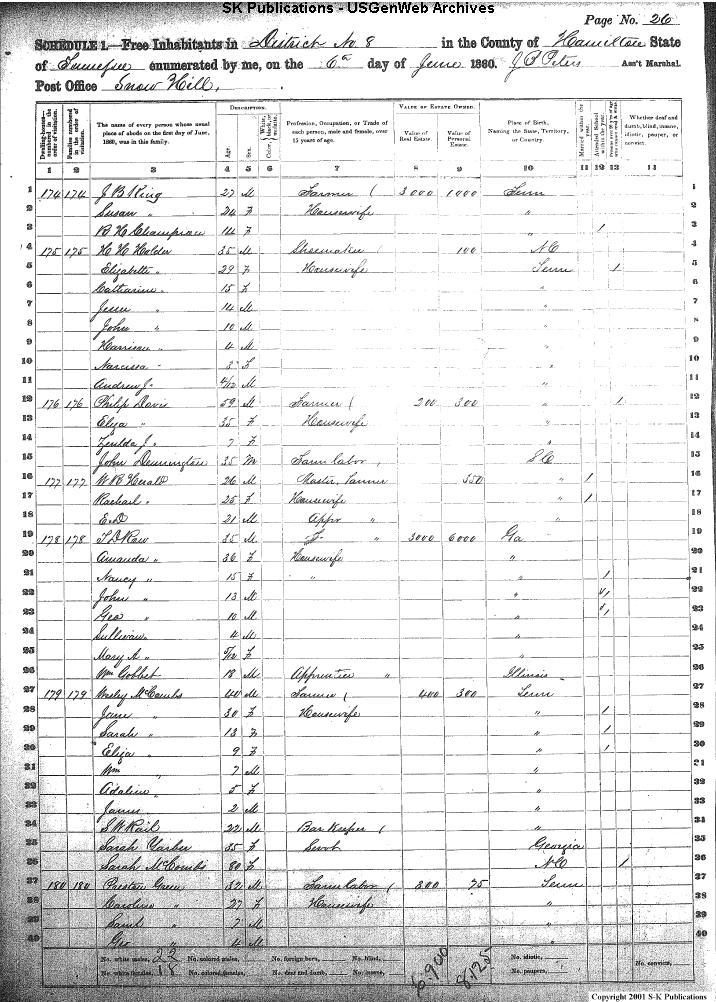 SK Publications - USGenWeb Archives
Page No. 26
SCHEDULE 1.—Free Inhabitants in District No. 8 in the County of Hamilton State
of Tennessee enumerated by me, on the 6th day of June 1860. Ass't Marshal.
Post Office Snow Hill,
DESCRIPTION. VALUE OF ESTATE OWNED.
The name of every person whose usual place of abode on the first day of June, 1860, was in this family. Age. Sex. Profession, Occupation, or Trade of each person, male and female, over 15 years of age. Value of Real Estate. Value of Personal Estate. Place of Birth, Naming the State, Territory, or Country. Married within the year. Attended School within the year. Whether deaf and dumb, blind, insane, idiotic, pauper, or convict.
1 2 3 4 5 6 7 8 9 10 11 12 13 14
1 174 174 J B King 27 M Farmer 3000 1000 Tenn 1
2 Susan " 24 F Housewife " 2
3 B H Champion 14 F " 1 3
4 175 175 H H Holder 35 M Shoemaker 100 NC 4
5 Elizabeth " 29 F Housewife Tenn 1 5
6 Catharine " 15 F " 6
7 Jesse " 14 M " 7
8 John " 10 M " 8
9 Harrison " 4 M " 9
10 Narcissa " 3 F " 10
11 Andrew J " M " 11
12 176 176 Philip Davis 59 M Farmer 200 300 " 1 12
13 Eliza " 35 F Housewife " 13
14 Zerilda J " 7 F " 14
15 John 35 M Farm labor SC 15
16 177 177 W B 26 M Master Tanner 350 " 1 16
17 Rachael " 25 F Housewife " 1 17
18 E D " 21 M Appr " " 18
19 178 178 35 M " 3000 6000 Ga 19
20 Amanda " 36 F Housewife " 20
21 Nancy " 15 F " " 1 21
22 John " 13 M " 1 22
23 Geo " 10 M " 1 23
24 Sullivan " 4 M " 24
25 Mary A " F " 25
26 Wm 18 M Apprentice " Illinois 26
27 179 179 Wesley McCombs 40 M Farmer 400 300 Tenn 27
28 Jane " 30 F Housewife " 1 28
29 Sarah " 13 F " 1 29
30 Eliza " 9 F " 1
Wm " 7 M "
Adaline " 5 F "
James " 2 M "
S W Rail 22 M Bar Keeper "
Sarah 35 F Servt Georgia
Sarah McCombs 80 F NC 1
180 180 Preston Green 32 M Farm labor 800 75 Tenn
Caroline " 27 F Housewife "
Saml " 7 M "
40 Geo " 4 M " 40
No. white males, 22 No. colored males, No. foreign born, No. blind, 6,900 8,125 No. idiotic, No. convicts,
No. white females, 18 No. colored females, No. deaf and dumb, No. insane, No. paupers,
Copyright 2001 S-K Publications